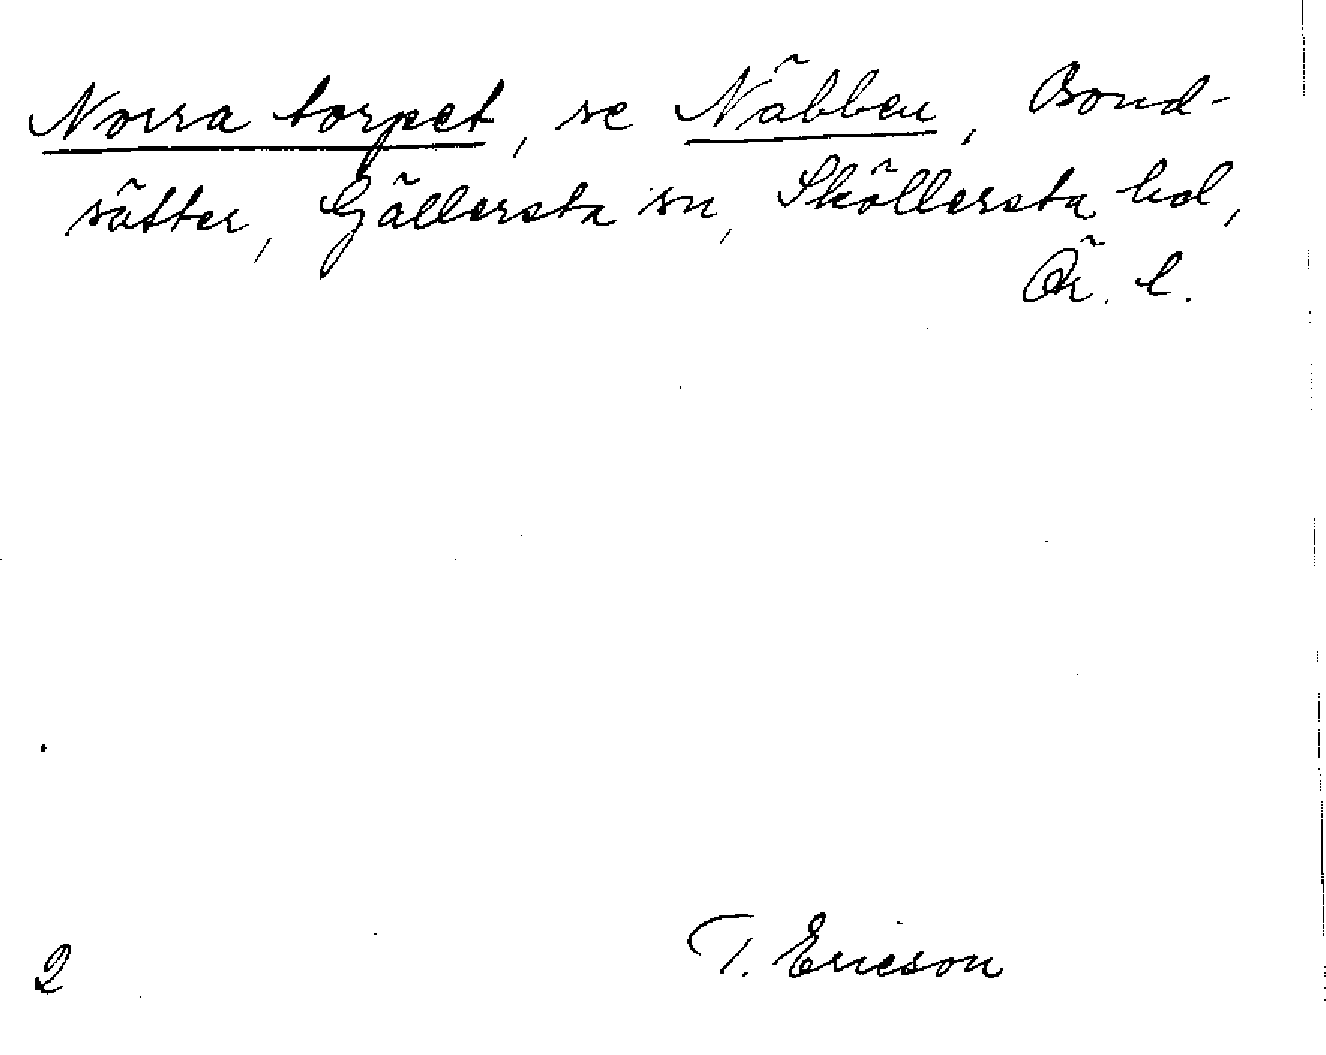 Norra torpet, se Näbben, Bond-
sätter, Gällersta sn, Sköllersta hd,
Ör. l.
T. Ericson
2